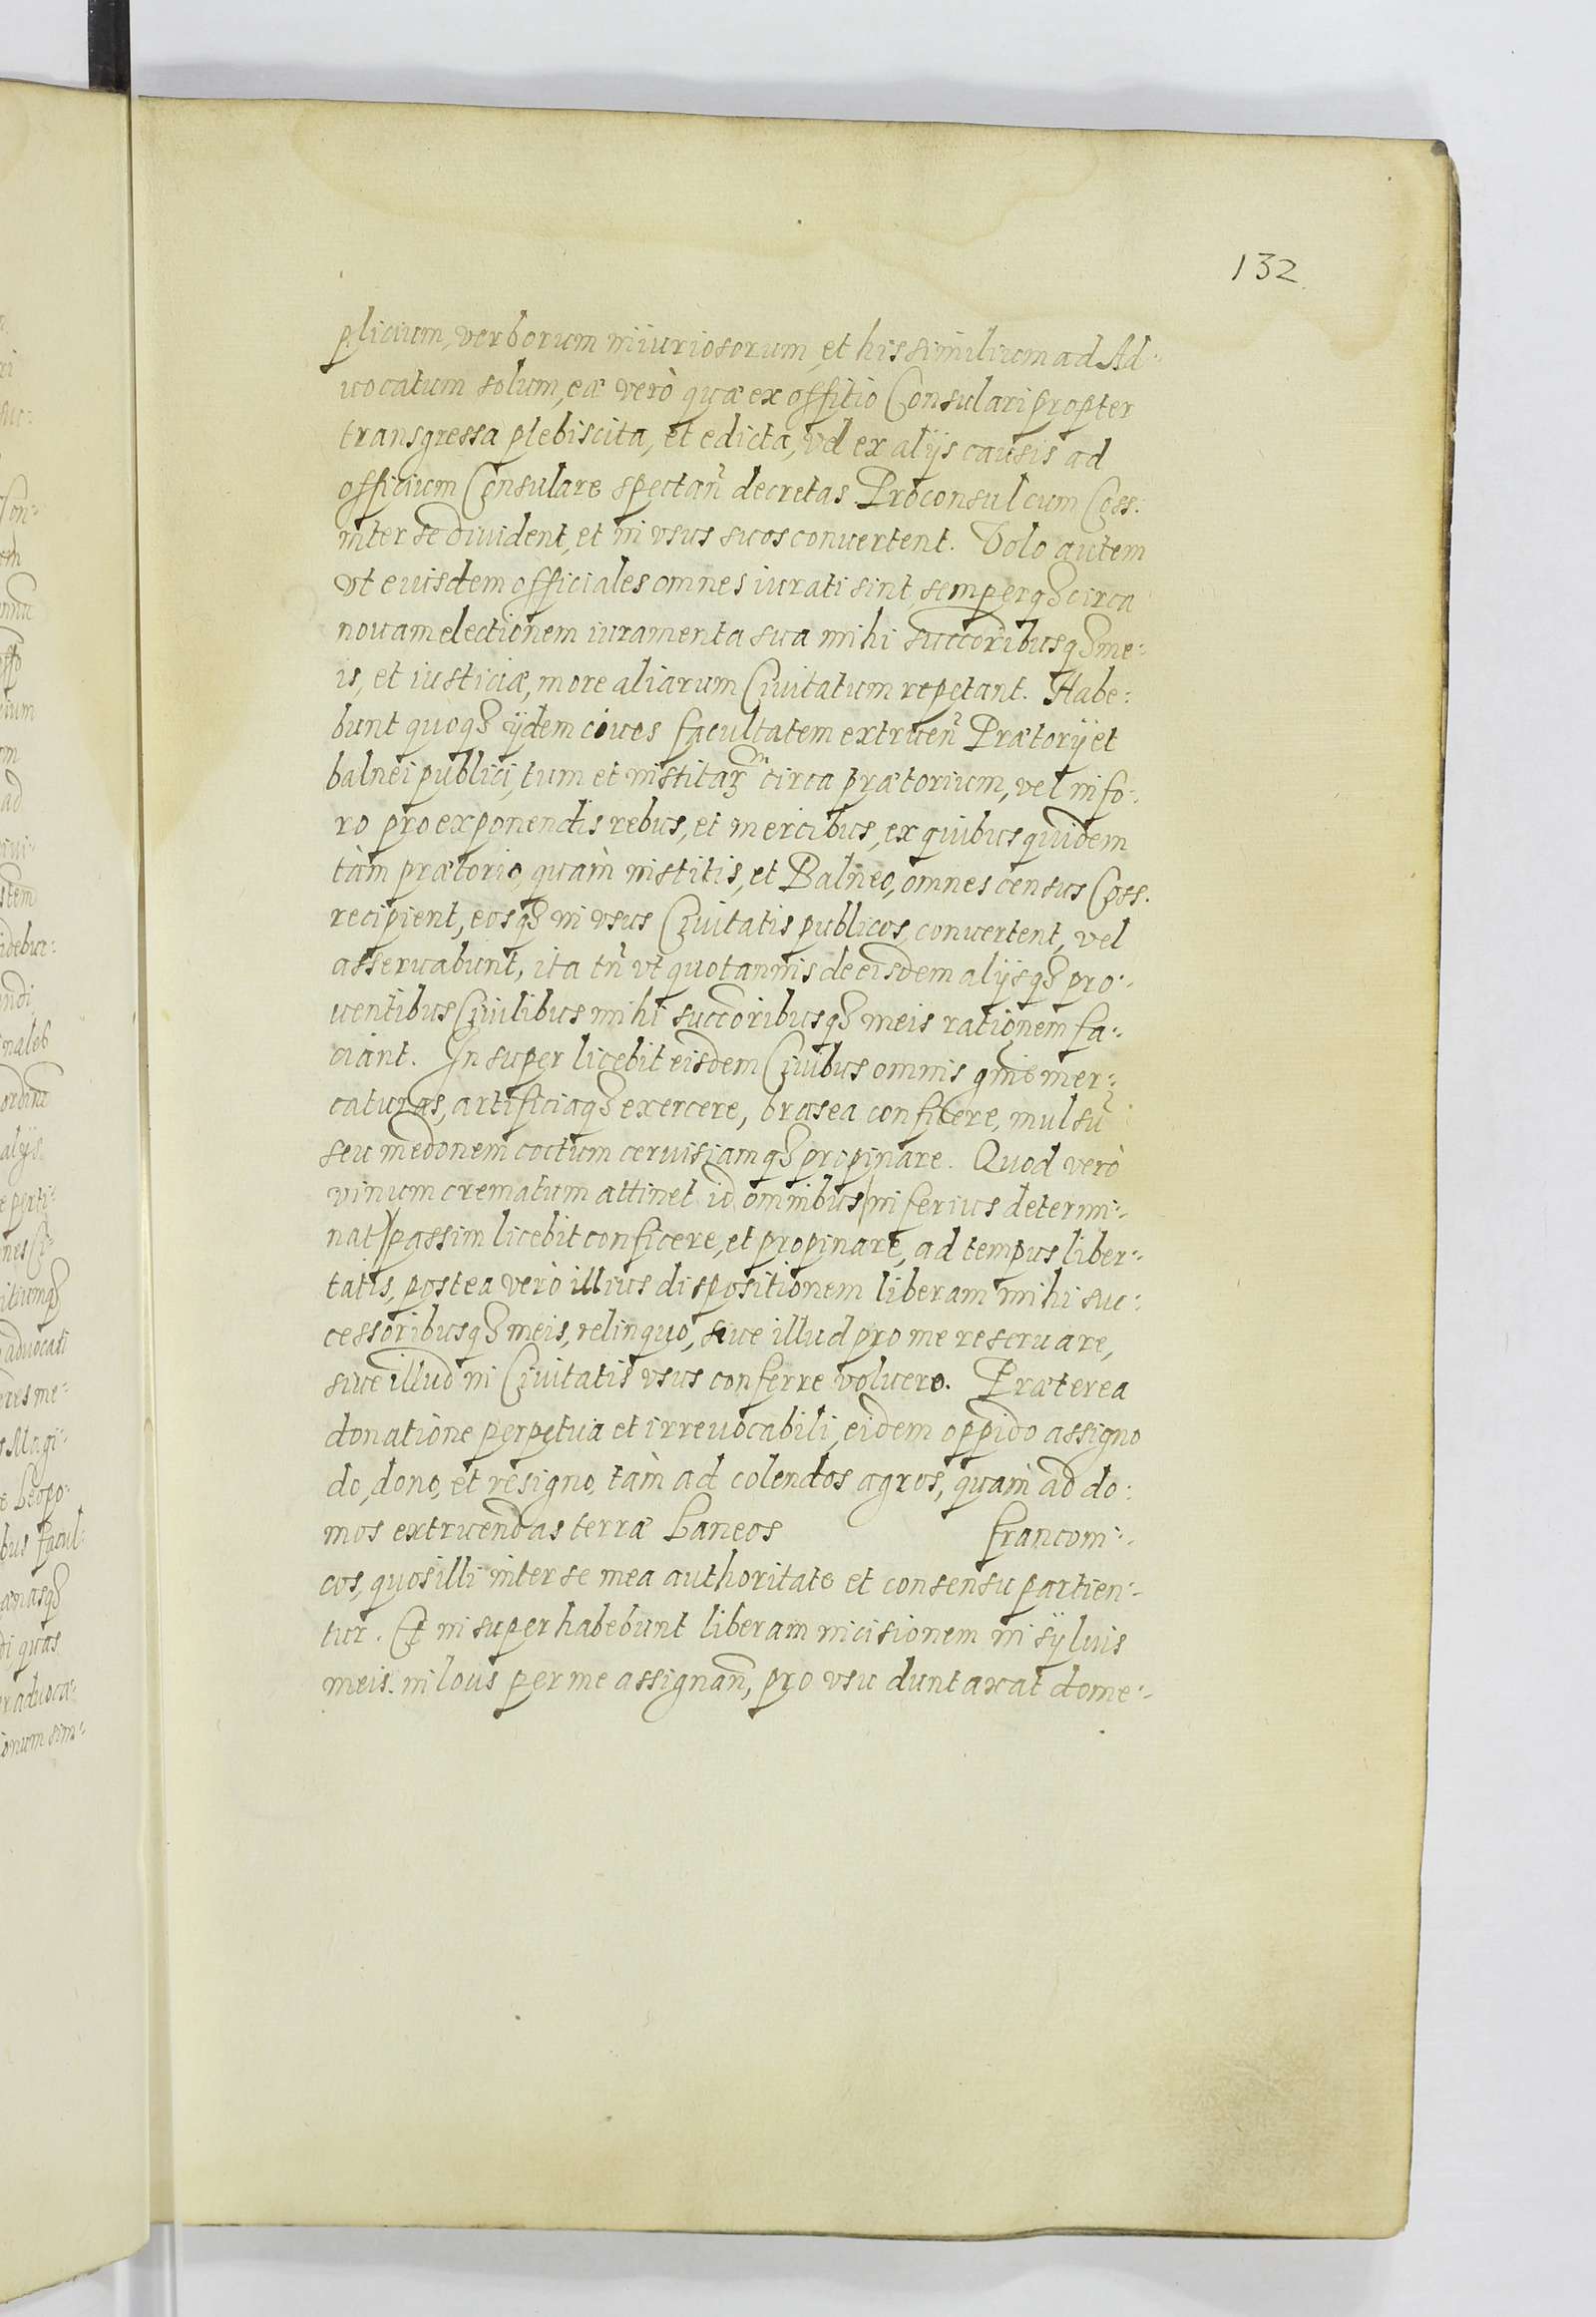 132
plicium, verborum iniuriosorum, et his similium ad Ad-
uocatum solum, eæ verò quæ ex offitio Consulari propter
transgressa plebiscita, et edicta, vel ex alijs causis ad
officium Consulare spectañ decretas Proconsul cum Coss.
inter se diuident, et in vsus suos conuertent. Volo autem
vt euisdem officiales omnes iurati sint, semperq3 circa
nouam electionem iuramenta sua mihi succoribusq3 me-
is, et iusticiæ, more aliarum Ciuitatum repetant. Habe-
bunt quoq3 ijdem ciues facultatem extrueñ Prætorij et
balnei publici, tum et institarz circa prætorium, vel in fo-
ro pro exponendis rebus, et mercibus, ex quibus quidem
tàm prætorio, quàm institis, et Balneo, omnes census Coss.
recipient, eosq3 in vsus Ciuitatis publicos, conuertent, vel
asseruabunt, ita tñ vt quotannis de eisdem alijsq3 pro-
uentibus Ciuilibus mihi succoribusq3 meis rationem fa-
ciant. In super licebit eisdem Ciuibus omnis gnis mer-
caturas, artificiaq3 exercere, brasea conficere, mulsu
seu medonem coctum ceruisiamq3 propinare. Quod verò
vinum crematum attinet id omnibus (inferius determi-
nat) passim licebit conficere, et propinare, ad tempus liber-
tatis, postea verò illius dispositionem liberam mihi suc-
cessoribusq3 meis, relinquo, siue illud pro me reseruare,
siue illud in Ciuitatis vsus conferre voluero. Præterea
donatione perpetua et irreuocabili, eidem oppido assigno
do, dono, et resigno, tàm ad colendos agros, quàm ad do-
mos extruendas terræ Laneos francom-
cos, quos illi inter se mea authoritate et consensu partien-
tur. Et in super habebunt liberam incisionem in syluis
meis. in locis per me assignañ, pro vsu duntaxat dome-